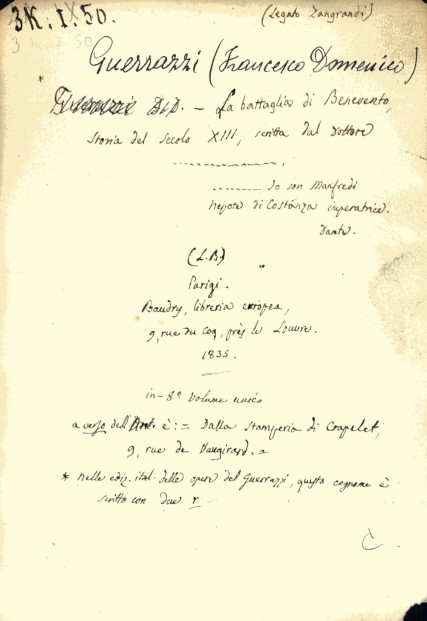 3K. IX. 50.
(Legato Zangrandi)
3 K I 50
Guerrazzi (Francesco Domenico)
* D.D. - La battaglia di Benevento,
Storia del secolo XIII, scritta dal Dottore
Io son Manfredi
Nepote di Costanza imperatrice.
Dante.
(L.B.)
Parigi.
Baudry, libreria europea,
9, rue du Coq, près le Louvre.
1835.
in-8º Volume unico
a verso dell'Ant. è := Dalla Stamperia di Crapelet,
9, rue de Vaugirard. =
* Nelle ediz. ital. delle opere del Guerrazzi, questo cognome è
scritto con due r
C